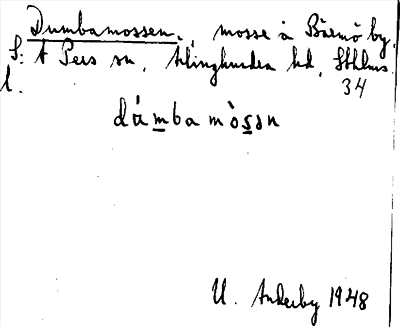 Dumbamossen, mosse å Bäsmö by,
S:t Pers sn, Hlinghundra hd, Sthlms
l. 34
dámba mòsən
U. Ankerby 1948